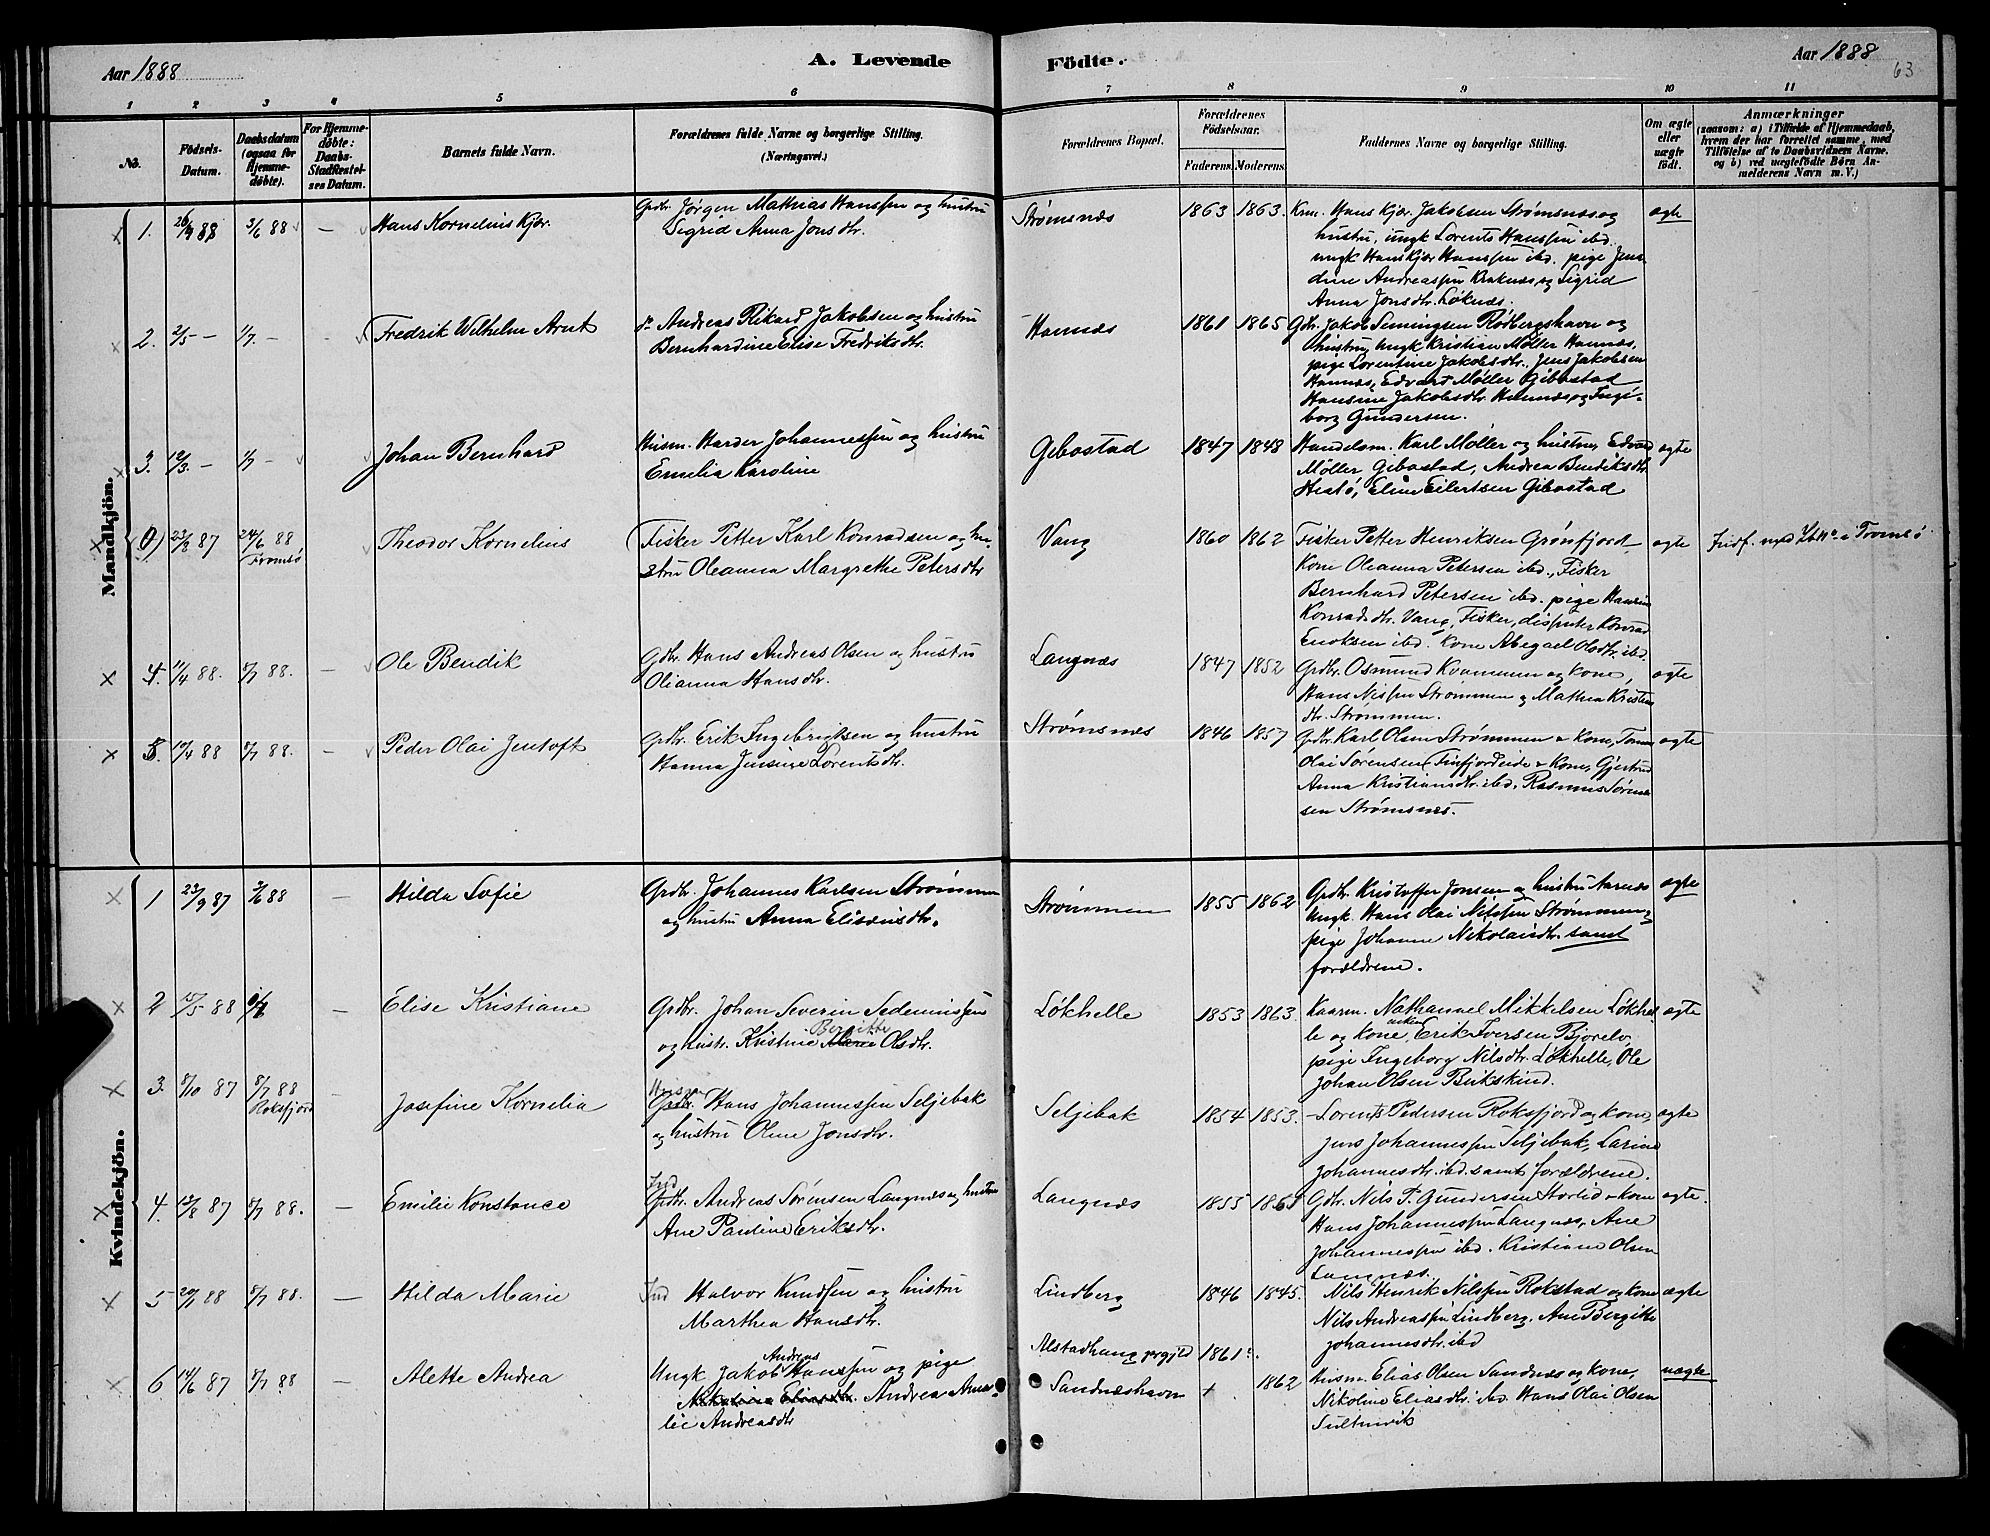 Aar 1888
A. Levende Födte.
Aar 1888
63
1 2 3 4 5 6 7 8 9 10 11
No.
Födsels-Datum.
Daabsdatum (ogsaa for Hjemmedøbte).
For Hjemmedøbte: Daabs-Stadfæstelses Datum.
Barnets fulde Navn.
Forældrenes fulde Navne og borgerlige Stilling.
(Næringsvei.)
Forældrenes Bopæl.
Forældrenes Födselsaar.
Faderens. Moderens.
Faddernes Navne og borgerlige Stilling.
Om ægte eller uægte födt.
Anmærkninger
(saasom: a) i Tilfælde af Hjemmedaab, hvem der har forrettet samme, med Tilföielse af to Daabsvidners Navne. og b) ved uægtefödte Børn Anmelderens Navn m. V.)
Mandkjön.
1. 3/6 88 — Hans Kornelius Kjær.
Gdbr. Jørgen Mathias Hanssen og hustru
Sigrid Anna Jonsdtr.
Strømsnæs 1863 1863.
Hans Kjær Jakobsen Strømsnæs og
hustru, ungk Lorents Hanssen ibd.
ungk Hans Kjær Hanssen ibd. pige Jen
dine Andreassen Kraknæs og Sigrid
Anna Jonsdtr. Løknæs.
ægte
2. 2/5 — 1/7 — Fredrik Wilhelm Arnt
Andreas Rikard Jakobsen og hustru
Bernhardine Elise Fredriksdtr.
Havnnæs 1861 1865
Gdbr. Jakob Simingsen Rødbergshavn og
hustru, ungk Kristian Møller Havnæs,
pige Lorentine Jakobsdtr., Jens Jakobsen
Havnæs, Edvard Møller Gibostad
Hansine Jakobsdtr. Havnæs og Inge-
borg Gundersen.
3. 12/3 — 1/7 — Johan Bernhard
Husm. Harder Johannessen og hustru
Emelia Karoline
Gibostad 1847 1848
Handelsm. Karl Møller og hustru, Edvard
Møller Gibostad, Andrea Bendiksdtr.
Elen Eilertsen Gibostad
ægte
0) 23/8 87 24/6 88 Tromsø
Theodor Kornelius
Fisker Petter Karl Konradsen og hu-
stru Oleanna Margrethe Petersdtr
Vang 1860 1862
Fisker Petter Henriksen Grønfjord
Kone Oleanna Petersen ibd., Fisker
Bernhard Petersen ibd. pige Hansine
Konradsdtr. Vang, Fisker, Konrad
Enoksen ibd. Kone Abegael Olsdtr. ibd.
ægte
Indf. i Tromsø
4. 11/4 88. 8/7 88. — Ole Bendik
Gdbr. Hans Andreas Olsen og hustru
Olianna Hansdtr.
Langnæs 1847 1852
Gdbr. Osmund Kvammen og kone,
Hans Nilssen Strømmen og Mathea Kristens
dtr. Strømmen.
ægte
5. 17/4 88 8/7 88. — Peder Olai Jentoft
Gdbr. Erik Ingebrigtsen og hustru
Hanna Jensine Lorentsdtr.
Strømsnes 1846 1857
Gdbr. Karl Olsen Strømmen & Kone,
Olai Sørensen Finfjordeide & Kone, Gjertrud
Anna Kristiansdtr. ibd. Rasmus Søren
sen Strømsnes.
ægte
Kvindekjön.
1 23/9 87 3/6 88 — Hilda Sofie
Gdbr. Johannes Karlsen Strømmen
og hustru Anna Eliseusdtr.
Strømmen 1855 1862
Gdbr. Kristoffer Jonsen og hustru Aarnæs
Ungk. Hans Olai Nilssen Strømmen,
pige Johanne Nikolaisdtr. samt
forældrene.
ægte
2 15/5 88 — Elise Kristiane
Gdbr. Johan Severin Sedeniussen
og hustr. Kristine Bergitte Olsdtr.
Løkhelle 1853 1863.
Kaarm. Nathanael Mikkelsen Løkhel
le og kone, enkem Erik Iversen Bjorelv,
pige Ingeborg Nilsdtr. Løkhelle, Ole
Johan Olsen Bukskind.
ægte
3. 8/10 87 8/7 88 Roksfjord
Josefine Kornelia
Husm. Hans Johannessen Seljebak
og hustru Oline Jonsdtr.
Seljebak 1854 1853.
Lorents Pedersen Roksfjord og kone,
Jens Johannessen Seljebak, Larine
Johannesdtr. ibd. samt forældrene.
ægte
4. 12/8 87 8/7 88. — Emilie Konstance
Ind Andreas Sørensen Langnæs og hustru
Ane Pauline Eriksdtr.
Langnæs 1855
Gdbr. Nils P. Gundersen Storlid & kone
Hans Johannessen Langnæs, Ane
Johannessen ibd. Kristiane Olsen
Langnæs.
ægte.
5 20/1 88 8/7 88. — Hilda Marie
Ind Halvor Knudsen og hustru
Marthea Hansdtr.
Lindberg 1846 1845.
Nils Henrik Nilssen Rokstad og kone
Nils Andreassen Lindberg, Ane Bergitte
Johannesdtr. ibd
ægte
6 14/6 87 8/7 88 — Alette Andrea
Ungk Jakob Andreas Hanssen og pige
Nikoline Eliasdtr. Andrea Ama-
lie Andreasdtr
Alstadhaug prgjld 1861
Sandnæshavn 1862
Husm. Elias Olsen Sandnæs og kone,
Nikoline Eliasdtr. ibd. Hans Olai Olsen
Sultinvik
uægte